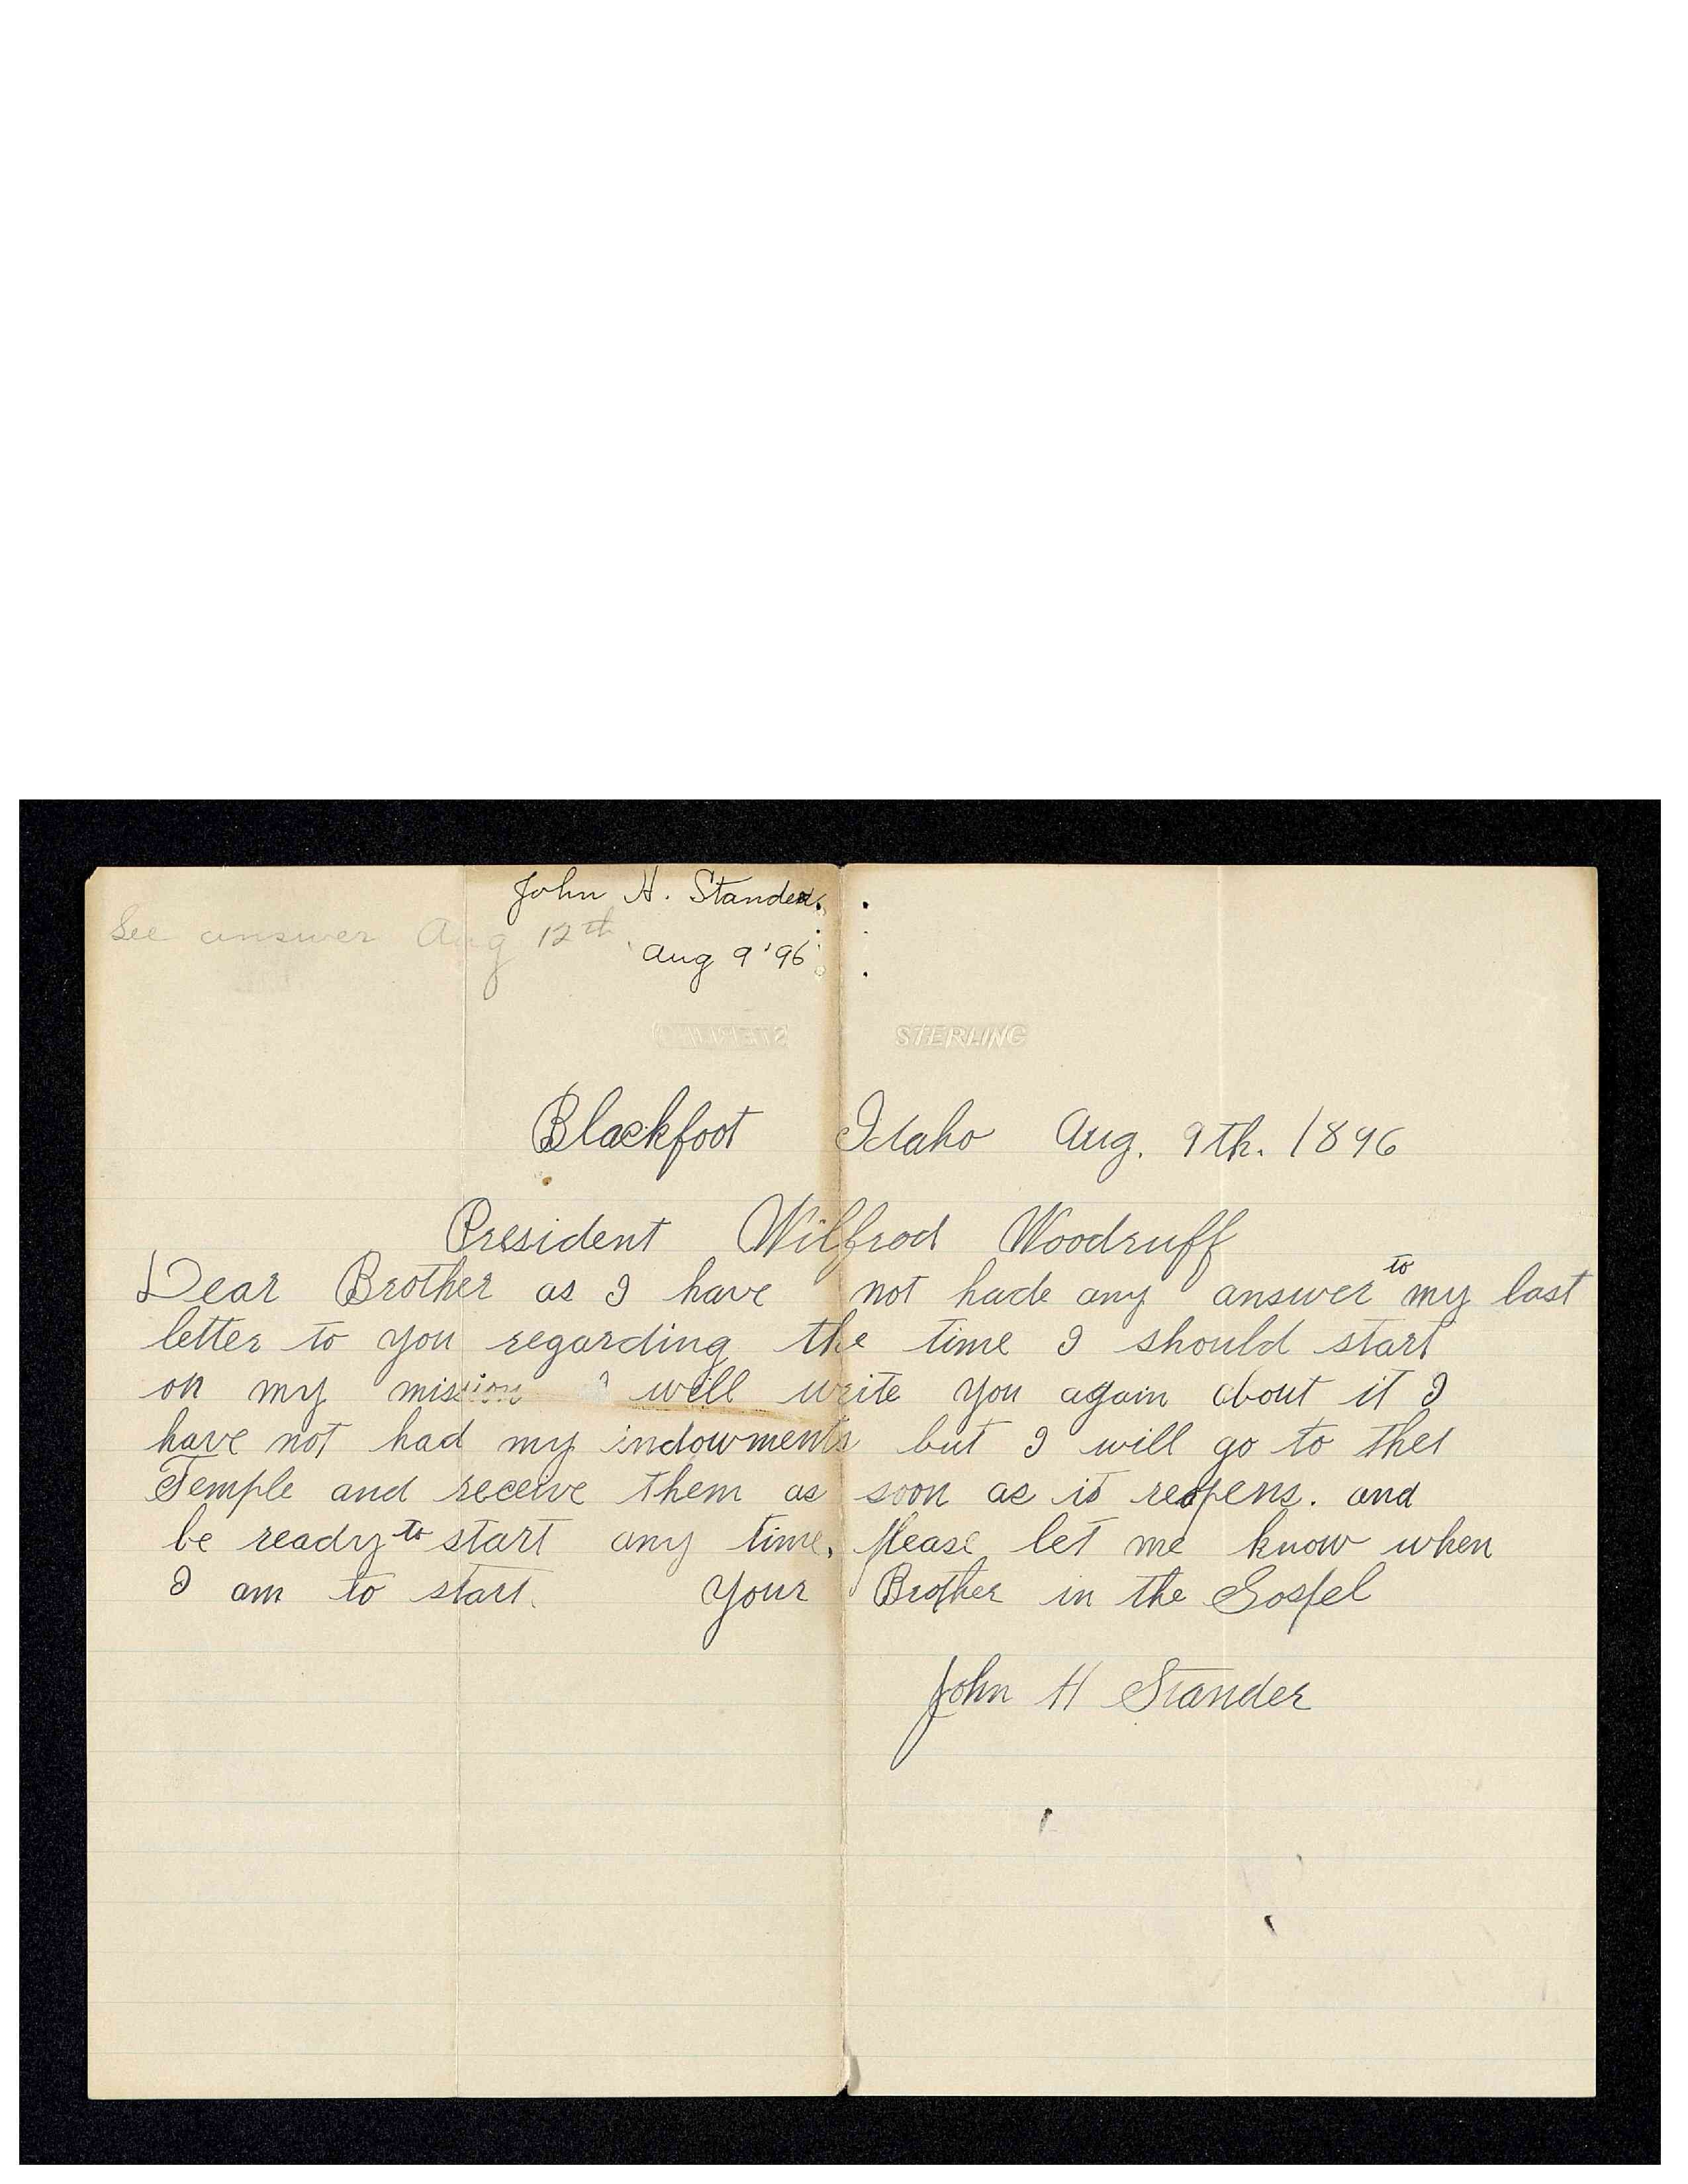 John H. Stander.
See answer Aug 12th
Aug 9 '96
STERLING
Blackfoot Idaho Aug. 9th. 1896
President Wilfrod Woodruff
Dear Brother as I have not hade any answer to my last
letter to you regarding the time I should start
on my mission I will write you again about it I
have not had my indowments but I will go to the
Temple and receive them as soon as it reopens. and
be ready to start any time. please let me know when
I am to start. Your Brother in the Gospel
John H Stander